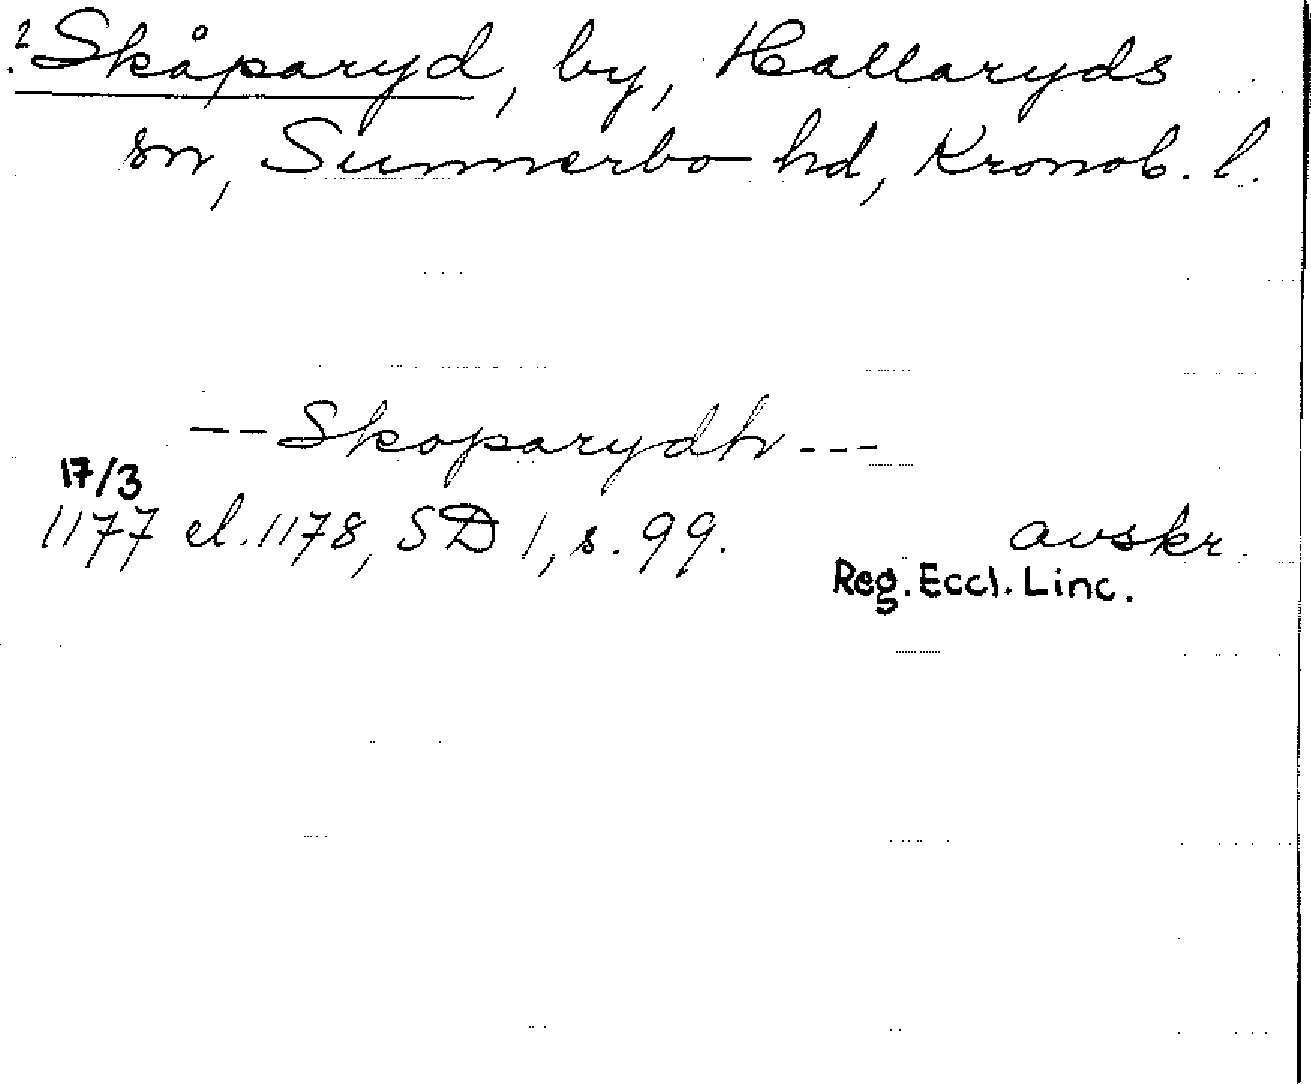 ?Skåparyd, by, Hallaryds
sn, Sunnerbo hd, Kronob. l.
--Skoparydh---
17/3
1177 el. 1178, SD 1, s. 99. avskr.
Reg. Eccl. Linc.